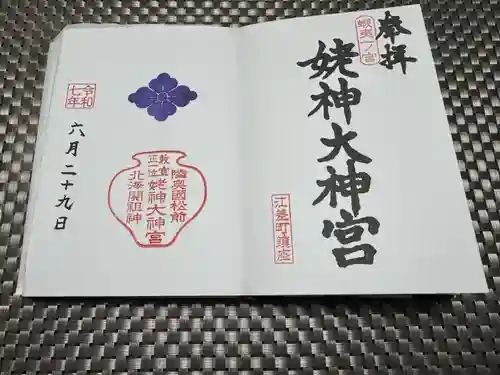 奉拝
蝦夷一ノ宮
姥神大神宮
江差町鎮座
陸奥國松前
勅宣
正一位
姥神大神宮
北海開祖神
令和
七年
六月二十九日